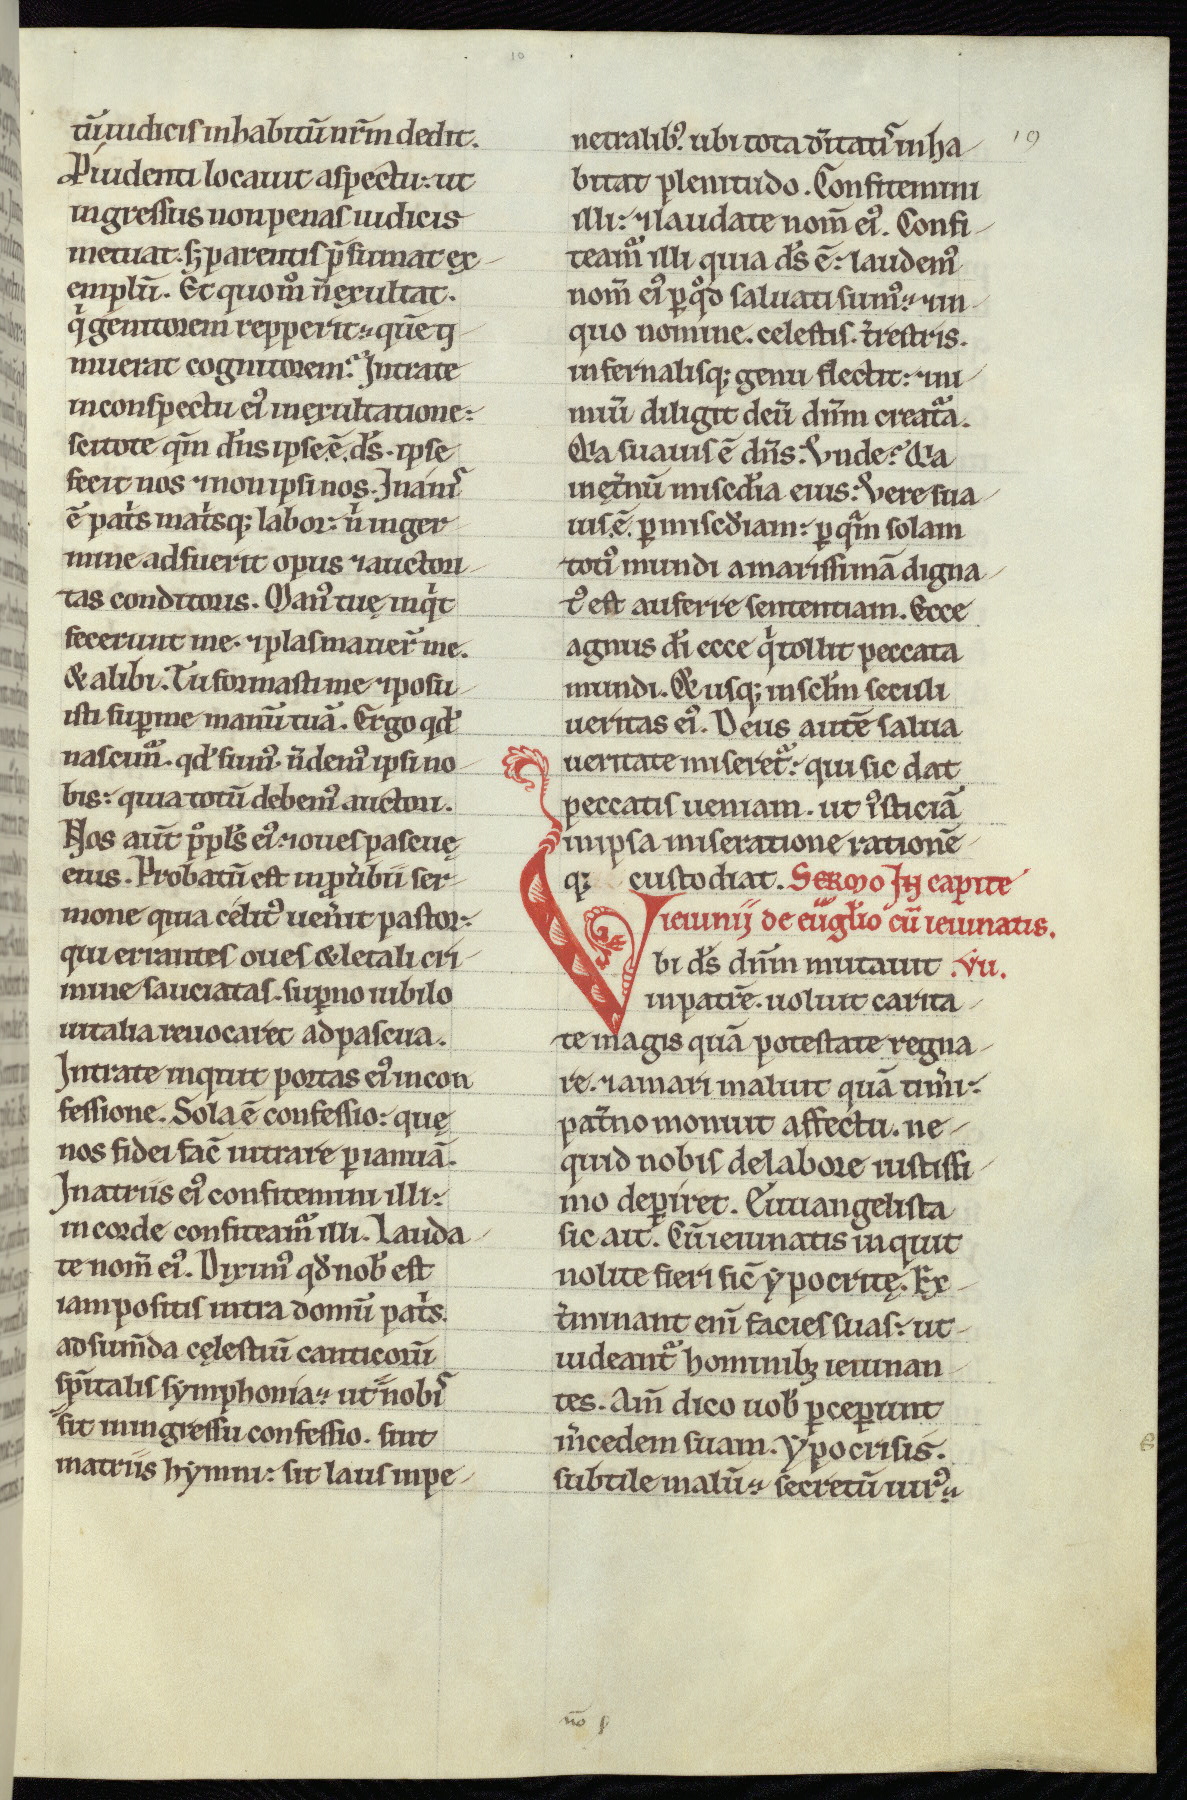 10
19
tū iudicis inhabitū nr̄m dedit.
Puidenti locauit aspectu: ut
ingressus non penas iudicis
metuat. sꝫ parentis p̄sumat ex-
emplū. Et quomͦ n̄ exultat.
qͥ genitorem repperit quē ti-
muerat cognitorem? Intrate
in conspectu eiꝰ in exultatione:
scitote qm̄ dn̄s ipse ē ds̄. ipse
fecit nos ⁊ non ipsi nos. Inanis
ē pat̄s mat̄sqꝫ labor: nͥ in ger-
mine adfuerit opus ⁊ auctori-
tas conditoris. Manꝰ tuę inqͥt
fecerunt me. ⁊ plasmauer̄ me.
& alibi. Tu formasti me ⁊ posu-
isti suꝑ me manū tuā. Ergo qd̄
nascimur. qd̄ sumꝰ. n̄ demꝰ ipsi no-
bis: quia totū debemꝰ auctori.
Nos aūt ppl̄s eiꝰ: ⁊ oues pascuę
eius. Probatū est in puͥbii ser-
mone quia celitꝰ uen̄it pastor:
qui errantes oues & letali cri-
mine sauciatas. suꝑno iubilo
uitalia reuocaret ad pascua.
Intrate inquit portas eiꝰ in con
fessione. Sola ē confessio: quę
nos fidei fac̄ intrare ꝑ ianuā.
In atriis eiꝰ confitemini illi:
in corde confiteamur illi. Lauda-
te nom̄ eiꝰ. Diximꝰ qd̄ nob̄ est
iam positis intra domū pat̄s.
ad sum̄da cęlestiū canticorū
sp̄italis symphonia: ut nobis
sit in ingressu confessio. sint
in atriis hymni: sit laus in pe-
netralibꝰ. ubi tota d̄itatis inha-
bitat plenitudo. Confitemini
illi: ⁊ laudate nom̄ eiꝰ. Confi-
teamur illi quia ds̄ ē: laudemꝰ
nom̄ eiꝰ ꝑ qͦd saluati sumꝰ: ⁊ in
quo nomine. celestis. t̄restris.
infernalisqꝫ genu flectit: ⁊ ni-
miū diligit deū dn̄m creatura.
Q̄a suauis ē dn̄s. Vnde? Q̄a
in et̄nū misc̄dia eius. Vere sua-
uis ē ꝑ misc̄diam: ꝑ qm̄ solam
totiꝰ mundi amarissimā digna-
tꝰ est auferre sententiam. Ecce
agnus di̅ ecce qͥ tollit peccata
mundi. & usqꝫ in sc̄lm seculi
ueritas eiꝰ. Deus autē salua
ueritate miseretur: qui sic dat
peccatis ueniam. ut iusticiā
in ipsa miseratione rationē-
qꝫ custodiat. Sermo In capite
ieiunii de eūglīo cū ieiunatis.
Vbi ds̄ dn̄m mutauit .vii.
in patrē. uoluit carita-
te magis quā potestate regna-
re. ⁊ amari maluit quā tim̄i:
pat̄no monuit affectu. ne-
quid nobis de labore iustissi-
mo deꝑiret. Cū euangelista
sic ait. Cū ieiunatis inquit
nolite fieri sic̄ ypocritę. Ex-
t̄minant eni̅ facies suas: ut
uideantur hominibꝫ ieiunan-
tes. Am̄ dico uob̄ ꝑceꝑunt
m̄cedem suam. Ypocrisis.
subtile malū: secretū uirꝰ